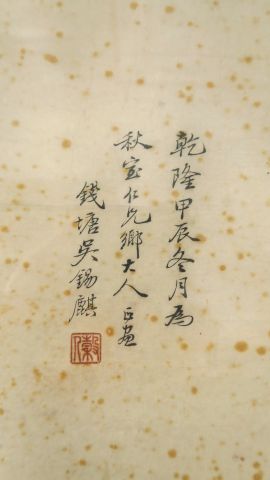 乾隆甲辰冬月為
秋室仁兄鄉大人正畫
錢塘吳錫麒